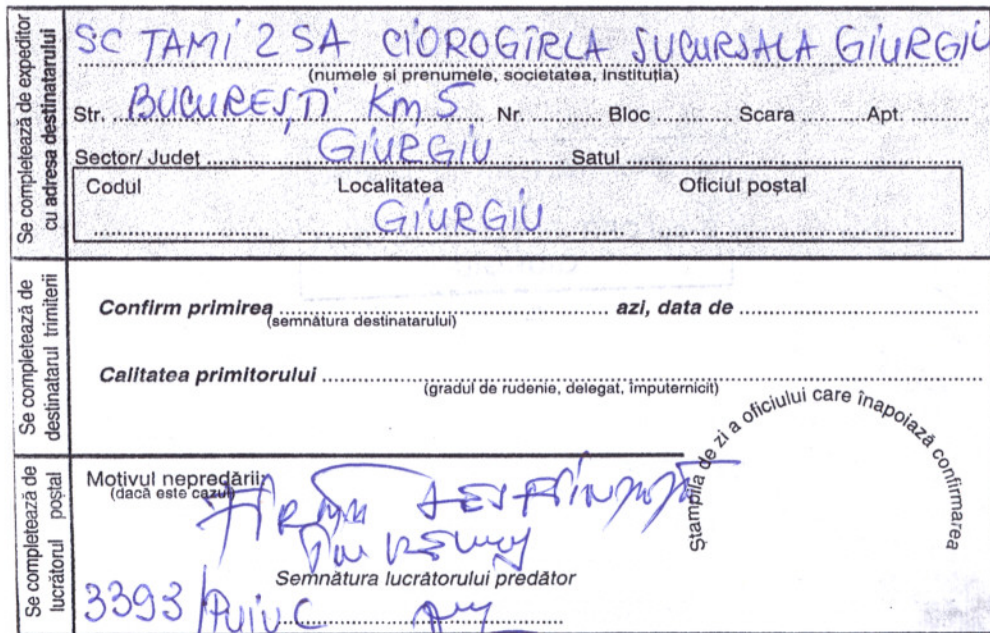 Se completează de expeditor
cu adresa destinatarului
SC TAMI 2 SA CIOROGÎRLA SUCURSALA GIURGIU
(numele și prenumele, societatea, Instituția)
Str. BUCUREȘTI Km 5 Nr. Bloc Scara Apt.
Sector/ Județ GIURGIU Satul
Codul Localitatea Oficiul poștal
GIURGIU
Se completează de
destinatarul trimiterii
Confirm primirea azi, data de
(semnătura destinatarului)
Calitatea primitorului
(gradul de rudenie, delegat, împuternicit)
Ștampila de zi a oficiului care înapoiază confirmarea
Se completează de
lucrătorul poștal
Motivul nepredării:
(dacă este cazul)
FIRMĂ DESFIINȚATĂ
Semnătura lucrătorului predător
3393 / PUIU C